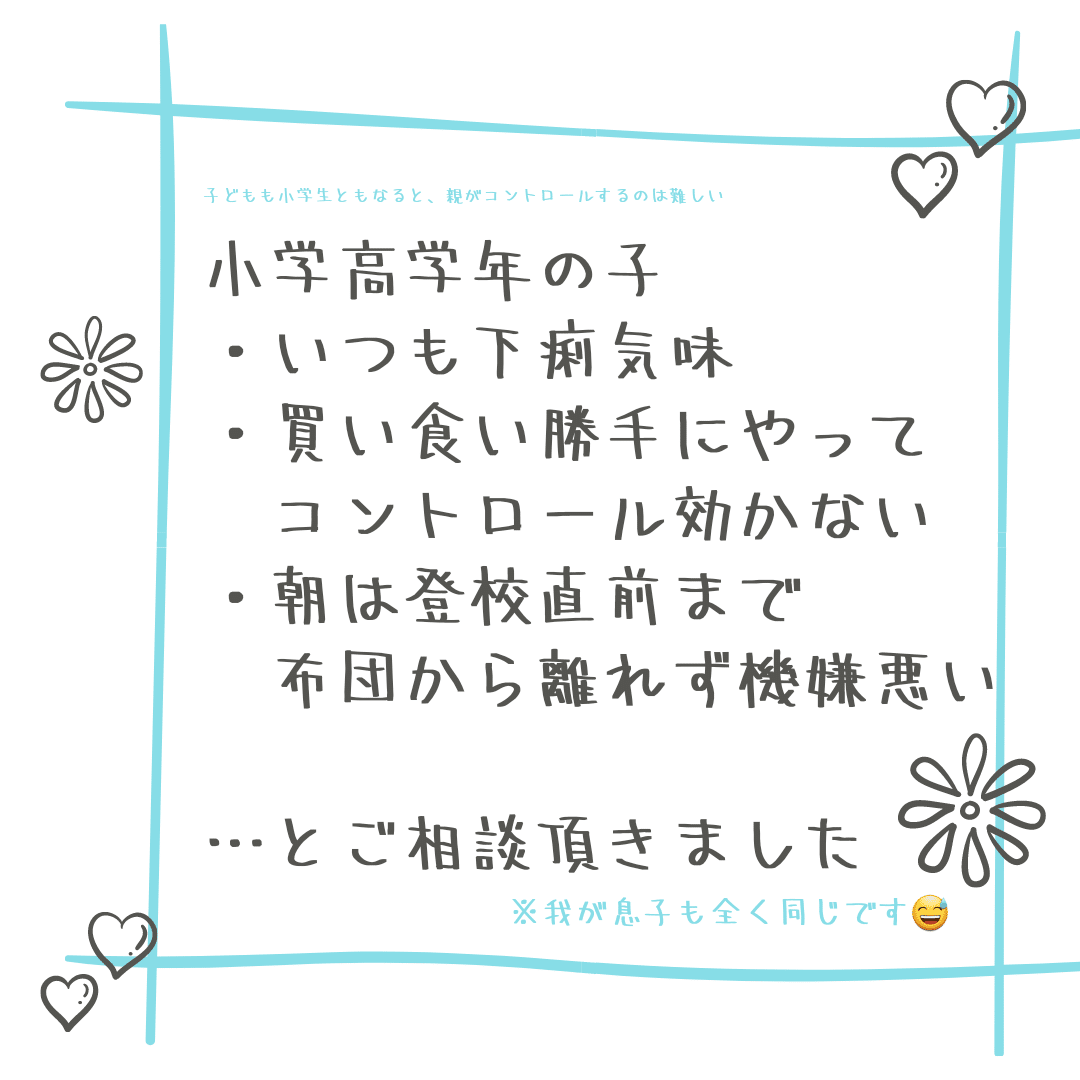 子どもも小学生ともなると、親がコントロールするのは難しい
小学高学年の子
・いつも下痢気味
・買い食い勝手にやって
コントロール効かない
・朝は登校直前まで
布団から離れず機嫌悪い
…とご相談頂きました
※我が息子も全く同じです😅